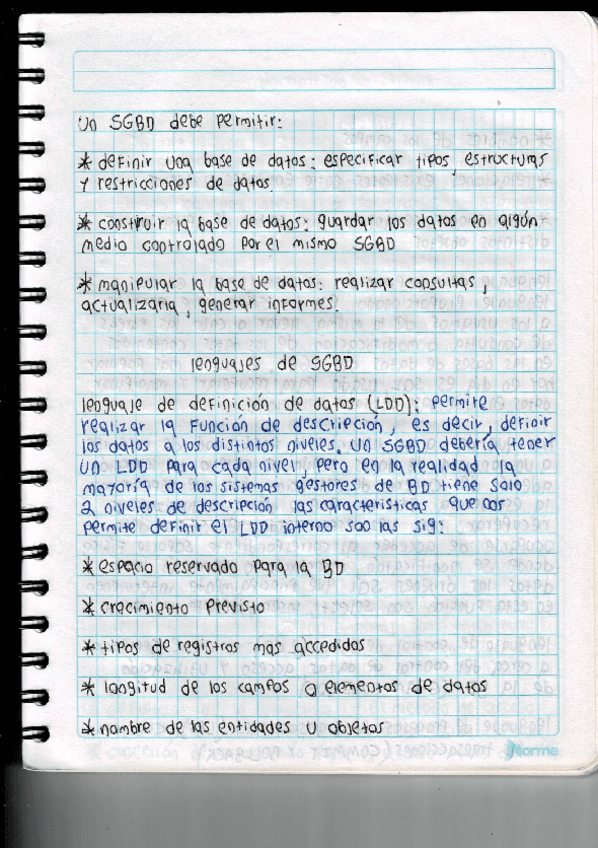 Un SGBD debe permitir:
* definir una base de datos: especificar tipos, estructuras
y restricciones de datos.
* construir la base de datos: guardar los datos en algún
medio controlado por el mismo SGBD
* manipular la base de datos: realizar consultas,
actualizarla, generar informes.
lenguajes de SGBD
lenguaje de definición de datos (LDD): permite
realizar la función de descripción, es decir, definir
los datos a los distintos niveles. Un SGBD debería tener
un LDD para cada nivel, pero en la realidad la
mayoría de los sistemas gestores de BD tiene solo
2 niveles de descripción las caracteristicas que nos
permite definir el LDD interno son las sig:
* espacio reservado para la BD
* crecimiento previsto
* tipos de registros mas accedidos
* longitud de los campos o elementos de datos
* nombre de las entidades u objetos
Norma